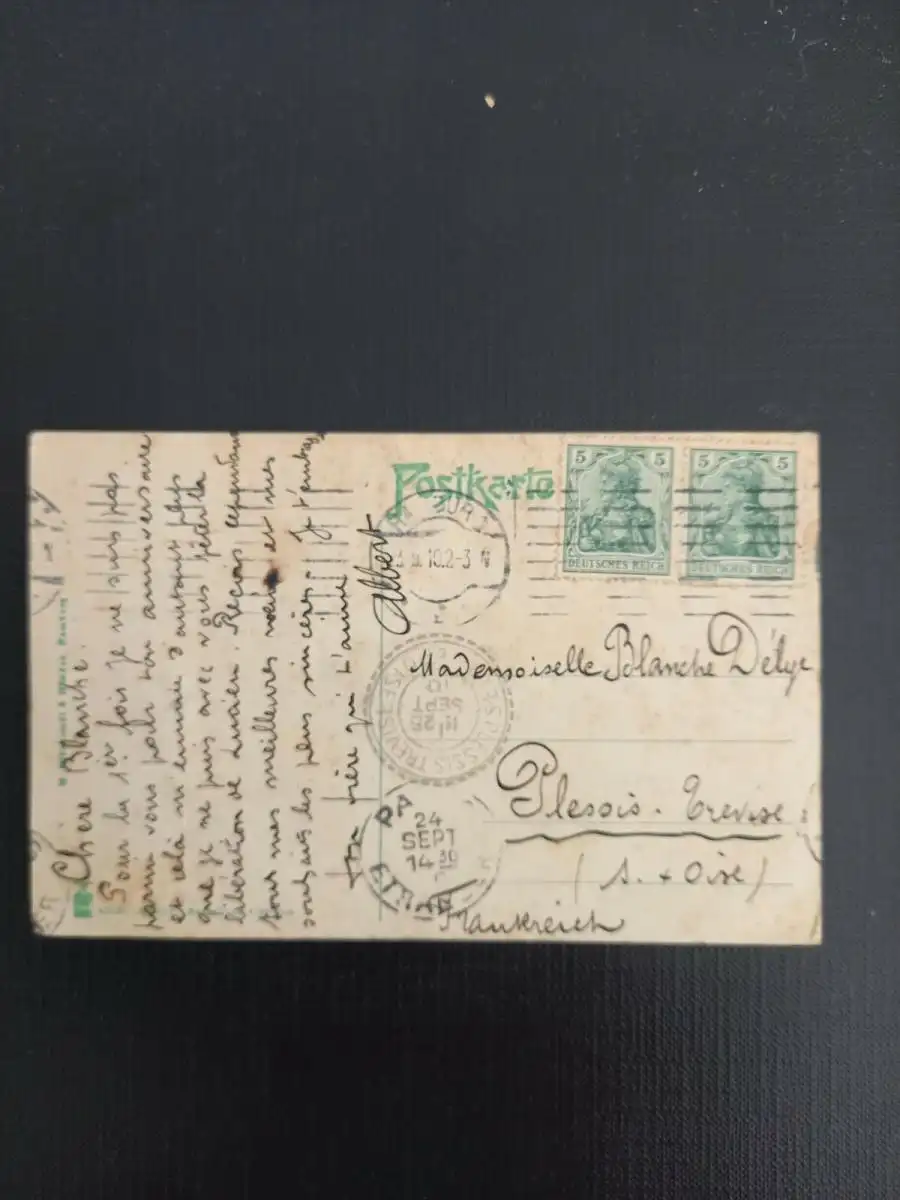 Postkarte
5 5
DEUTSCHES REICH
5 5
DEUTSCHES REICH
10.2-3 N
Mademoiselle Blanche Délye
Plessis-Trevise
(S. + Oise)
Frankreich
PLESSIS TREVISE
25
SEPT
10
24
SEPT
14 30
Chère Blanche.
Pour la 1er fois je ne suis pas
parmi vous pour ton anniversaire
et celà m'ennuie d'autant plus
que je ne puis avec vous fêter la
libération de Lucien. Reçois cependant
tous mes meilleures vœux et mes
souhaits les plus sincères. Je t'embrasse
Ton frère qui t'aime
Albert